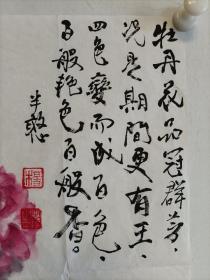 牡丹花品冠群芳、
况是期間更有王、
四色變而成百色、
百般艳色百般香。
半憨